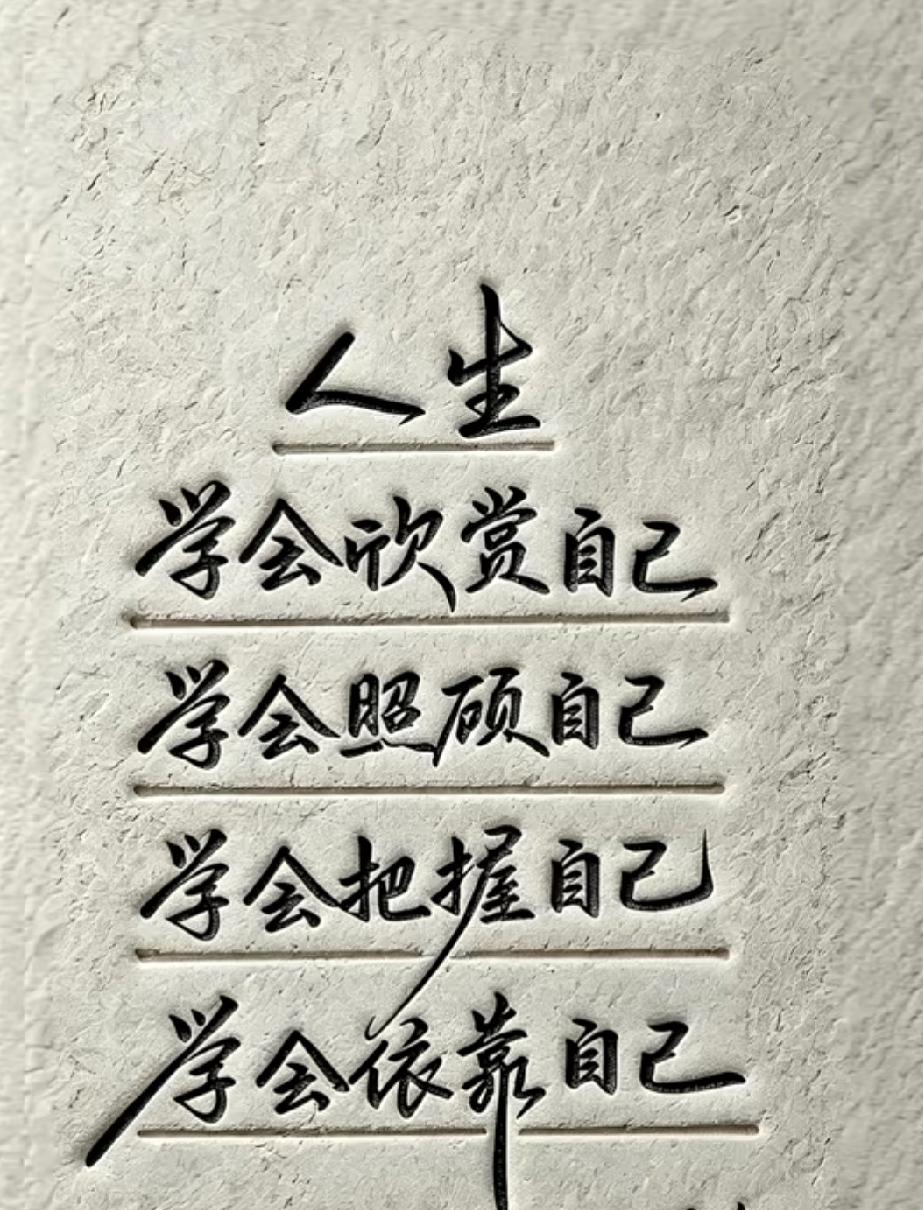 人生
学会欣赏自己
学会照顾自己
学会把握自己
学会依靠自己